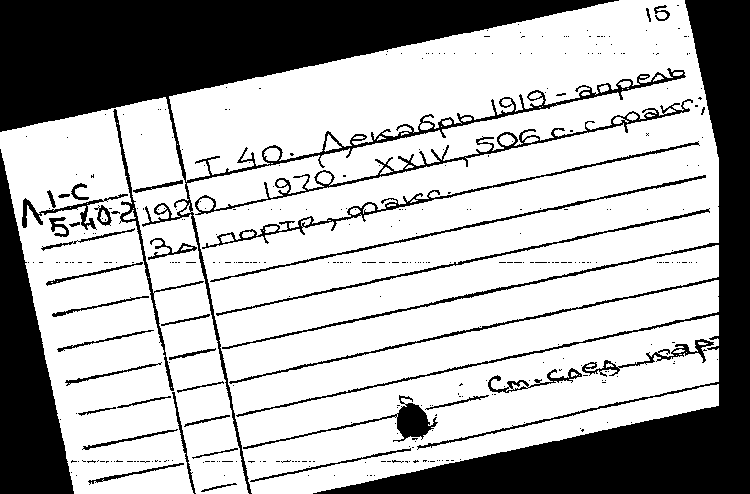 15
Т. 40. Декабрь 1919 - апрель
Л 1-С
5-40-2
1920. 1970. XXIV, 506 с. с факс.;
3 л. портр., факс.
См. след. кар